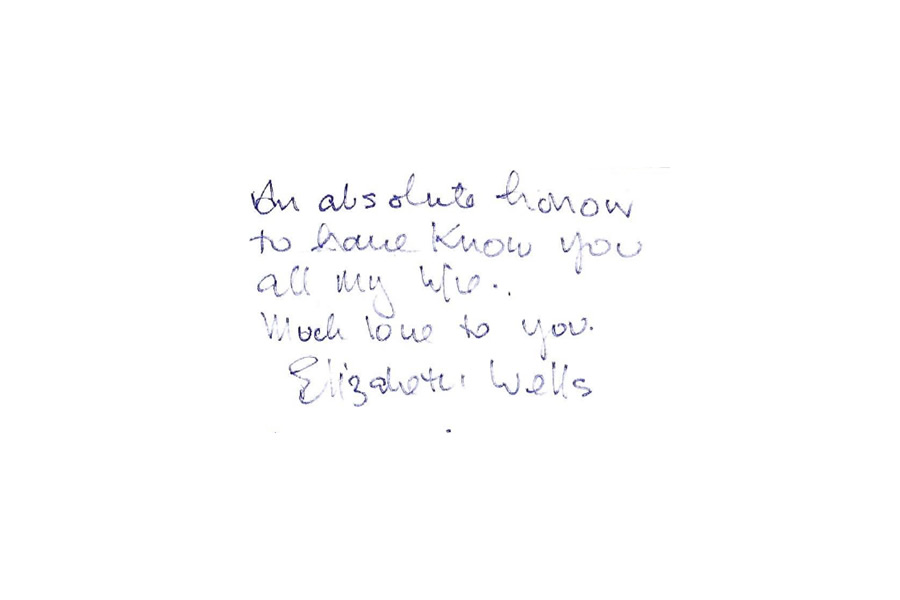 An absolute honour
to have Know you
all my life..
Much love to you.
Elizabeth Wells